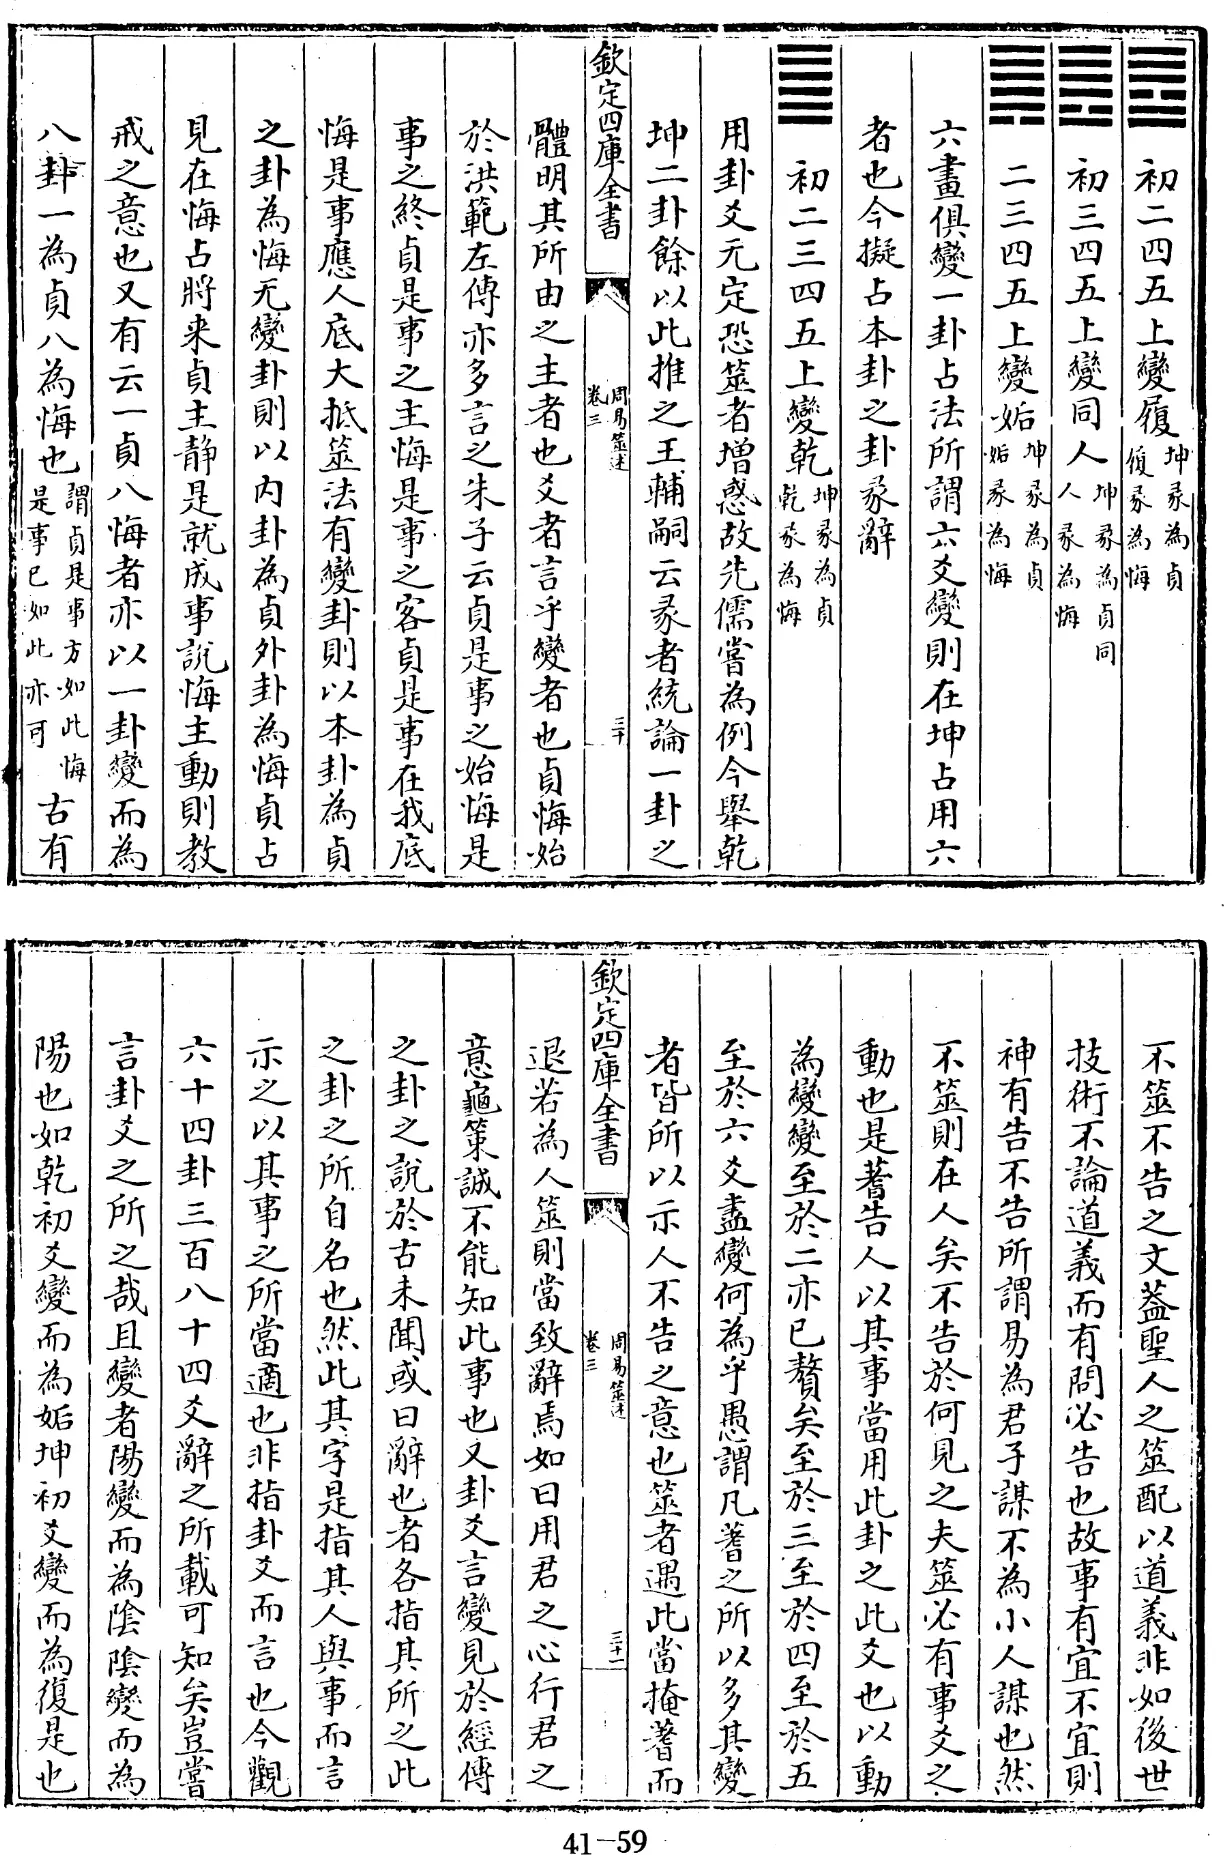 初二四五上變履坤彖為貞履彖為悔
初三四五上變同人坤彖為貞同人彖為悔
二三四五上變姤坤彖為貞姤彖為悔
六畫俱變一卦占法所謂六爻變則在坤占用六
者也今擬占本卦之卦彖辭
初二三四五上變乾坤彖為貞乾彖為悔
用卦爻无定恐筮者增惑故先儒嘗為例今舉乾
坤二卦餘以此推之王輔嗣云彖者統論一卦之
欽定四庫全書
周易筮述
卷三
三十
體明其所由之主者也爻者言乎變者也貞悔始
於洪範左傳亦多言之朱子云貞是事之始悔是
事之終貞是事之主悔是事之客貞是事在我底
悔是事應人底大抵筮法有變卦則以本卦為貞
之卦為悔无變卦則以内卦為貞外卦為悔貞占
見在悔占將来貞主静是就成事説悔主動則教
戒之意也又有云一貞八悔者亦以一卦變而為
八卦一為貞八為悔也謂貞是事方如此悔是事已如此亦可古有
不筮不告之文葢聖人之筮配以道義非如後世
技術不論道義而有問必告也故事有宜不宜則
神有告不告所謂易為君子謀不為小人謀也然
不筮則在人矣不告於何見之夫筮必有事爻之
動也是蓍告人以其事當用此卦之此爻也以動
為變變至於二亦已贅矣至於三至於四至於五
至於六爻盡變何為乎愚謂凡蓍之所以多其變
者皆所以示人不告之意也筮者遇此當掩蓍而
欽定四庫全書
周易筮述
卷三
三十一
退若為人筮則當致辭焉如曰用君之心行君之
意龜策誠不能知此事也文卦爻言變見於經傳
之卦之説於古未聞或曰辭也者各指其所之此
之卦之所自名也然此其字是指其人與事而言
示之以其事之所當適也非指卦爻而言也今觀
六十四卦三百八十四爻辭之所載可知矣豈嘗
言卦爻之所之哉且變者陽變而為陰陰變而為
陽也如乾初爻變而為姤坤初爻變而為復是也
41-59